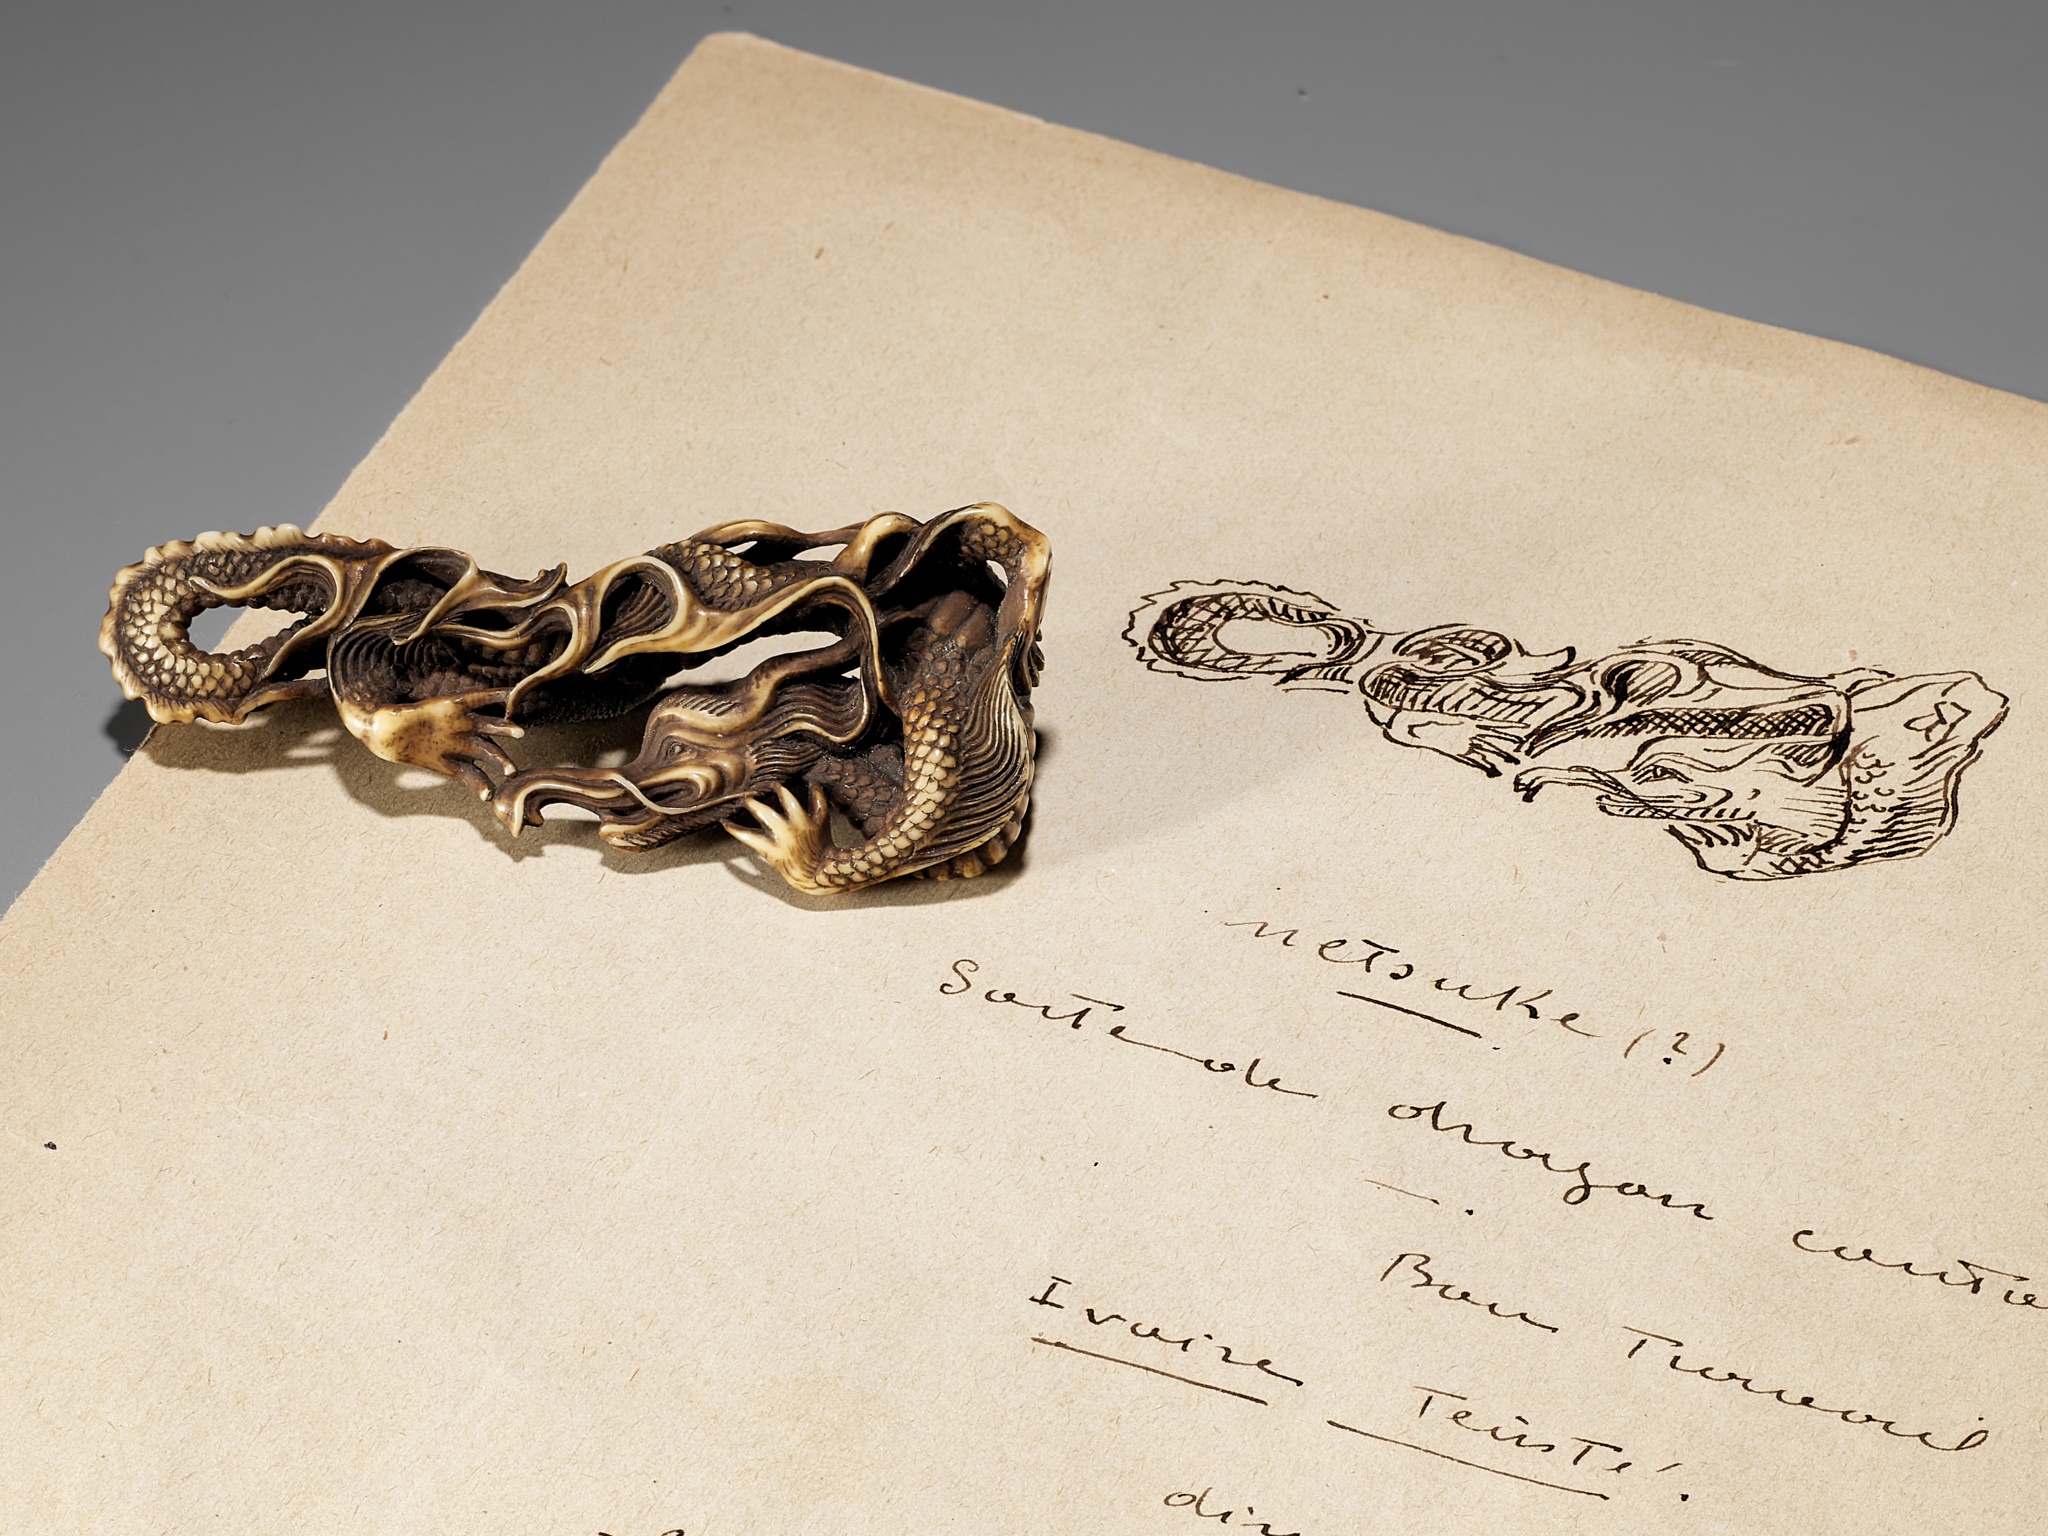 netsuke (?)
Sorte de dragon
Bon Travail
Ivoire Teinté.